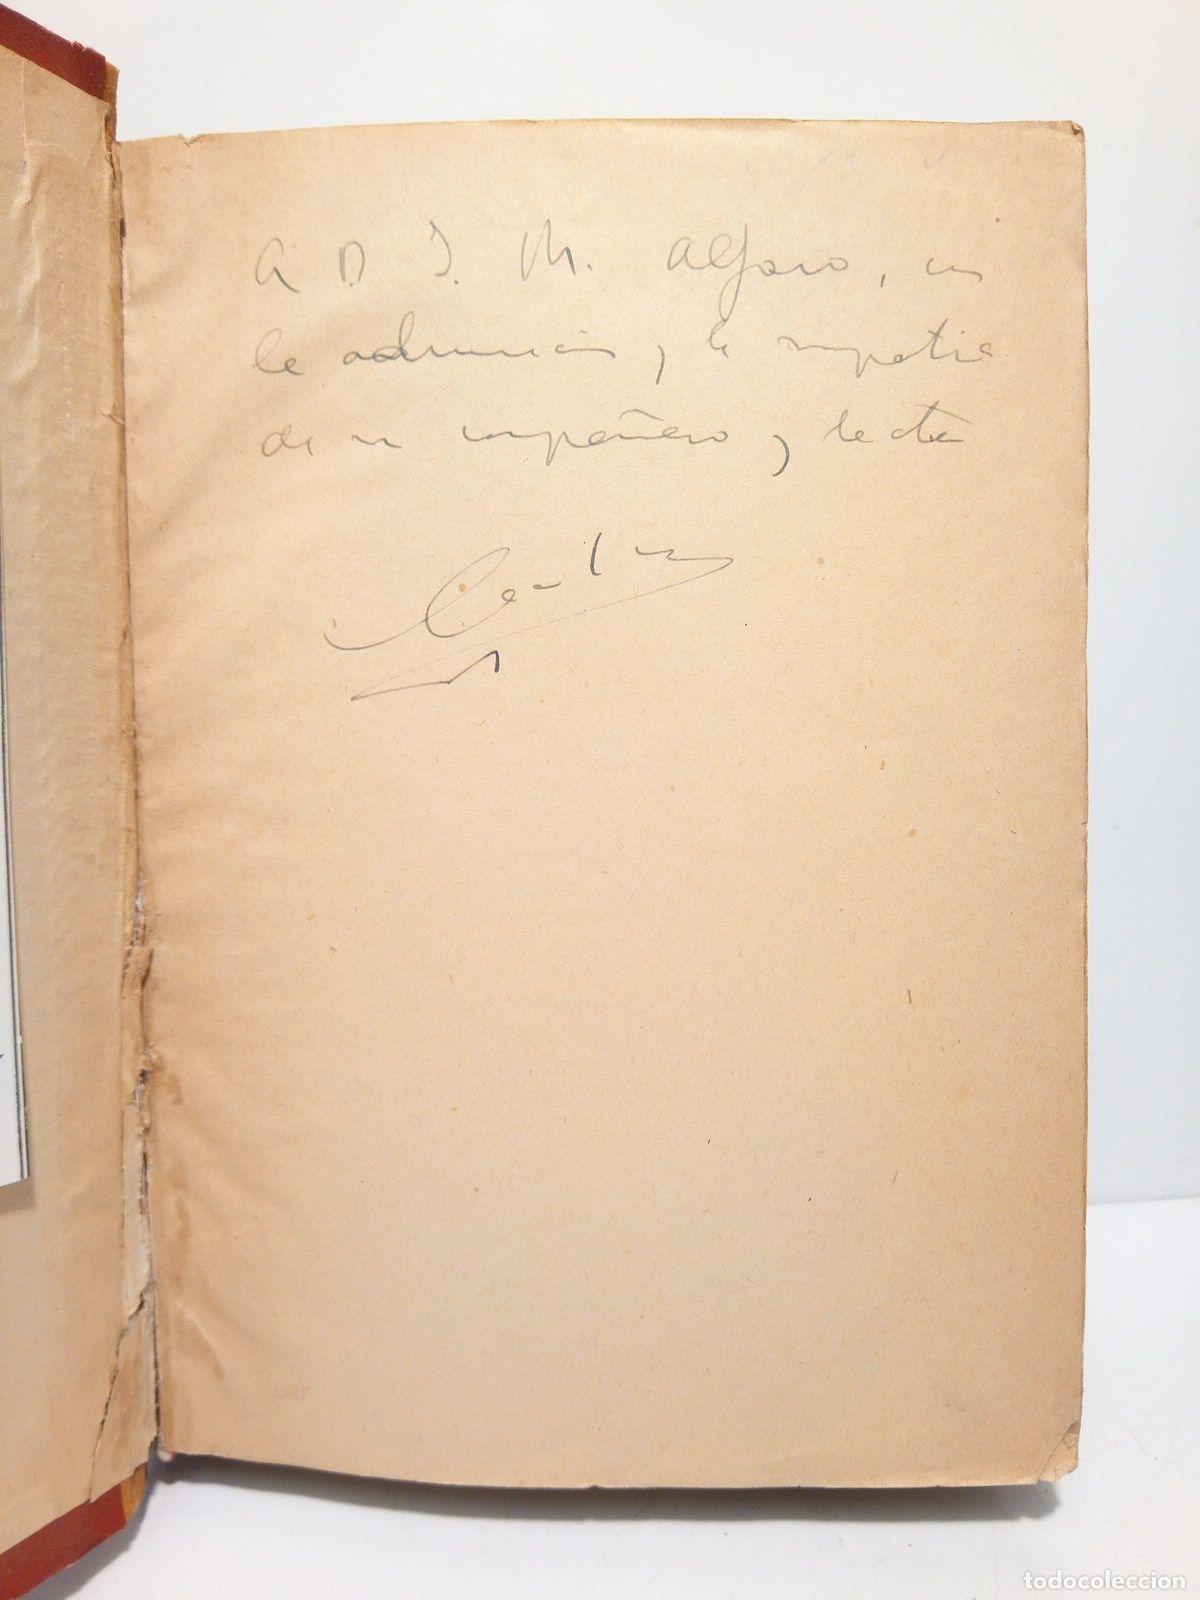 A D J. M. Alfaro, con
la admiración y la simpatía
de su compañero y lector
todocoleccion